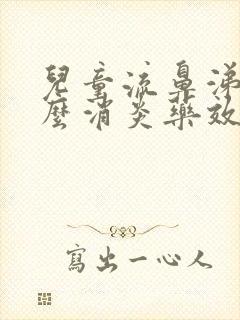 兒童流鼻涕
麼消炎藥效
寫出一心人